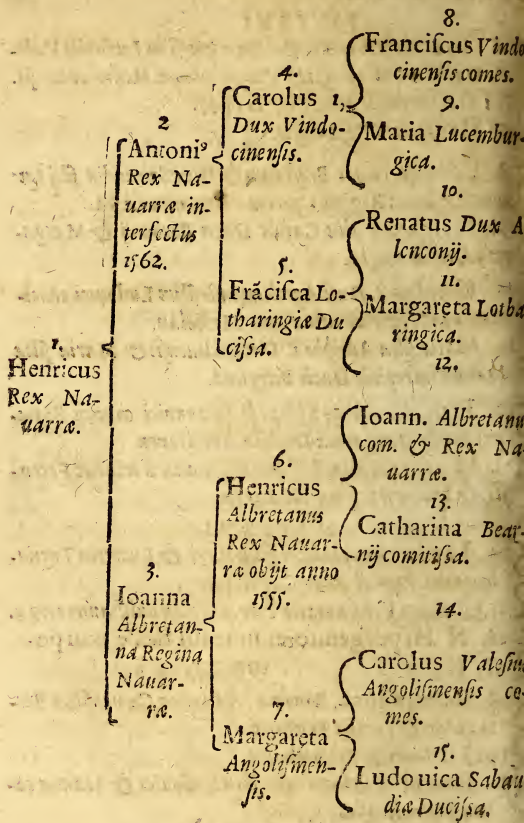 1.
Henricus
Rex Na-
uarræ.
2
Antoniꝰ
Rex Na-
uarræ in-
terfectus
1562.
3.
Ioanna
Albretan-
na Regina
Nauar-
ræ.
4.
Carolus 1,
Dux Vindo-
cinenſis.
5.
Frãciſca Lo-
tharingiæ Du
ciſſa.
6.
Henricus
Albretanus
Rex Nauar-
ræ obijt anno
1555.
7.
Margareta
Angoliſmen-
ſis.
8.
Franciſcus Vindo
cinenſis comes.
9.
Maria Lucembur-
gica.
10.
Renatus Dux A
lenconij.
11.
Margareta Lotha
ringica.
12.
Ioann. Albretanu
com. & Rex Na-
uarræ.
13.
Catharina Bear-
nij comitiſſa.
14.
Carolus Valeſius
Angoliſmenſis co-
mes.
15.
Ludouica Sabau
diæ Duciſſa.